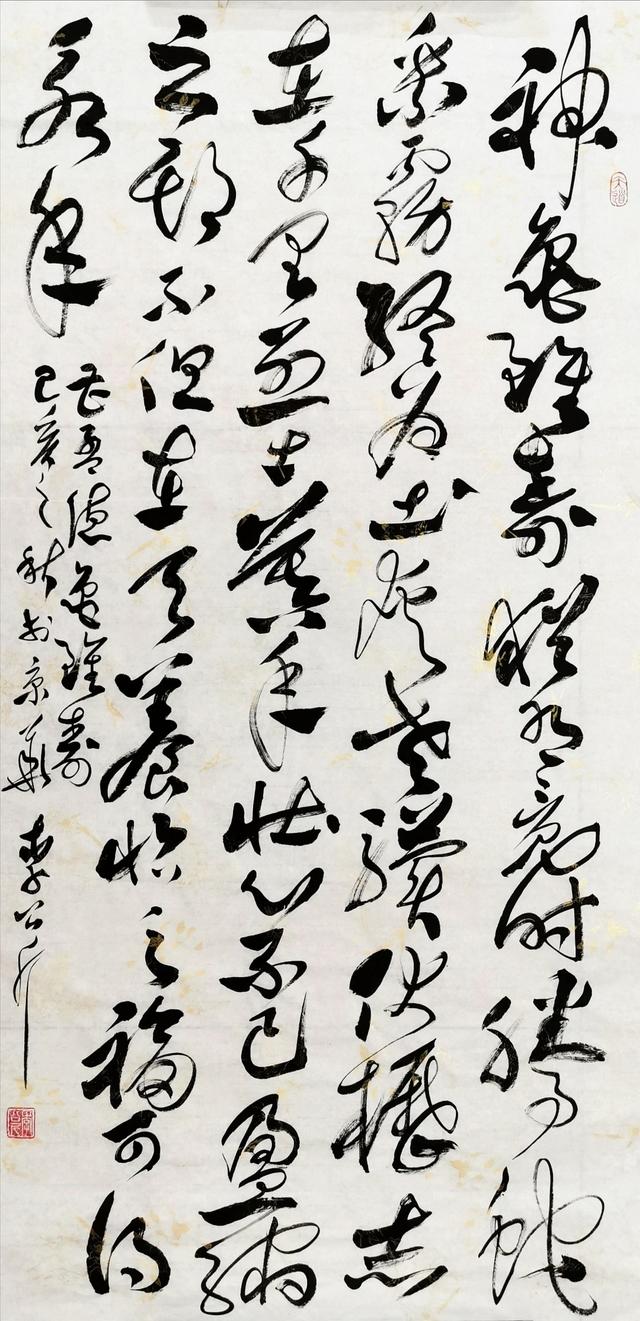 神龜雖壽猶有竟时騰蛇
乘霧終为土灰老驥伏櫪志
在千里烈士暮年壮心不已盈縮
之期不但在天養怡之福可得
永年
曹孟德龜雖壽
己亥之秋於京華 李公
天道